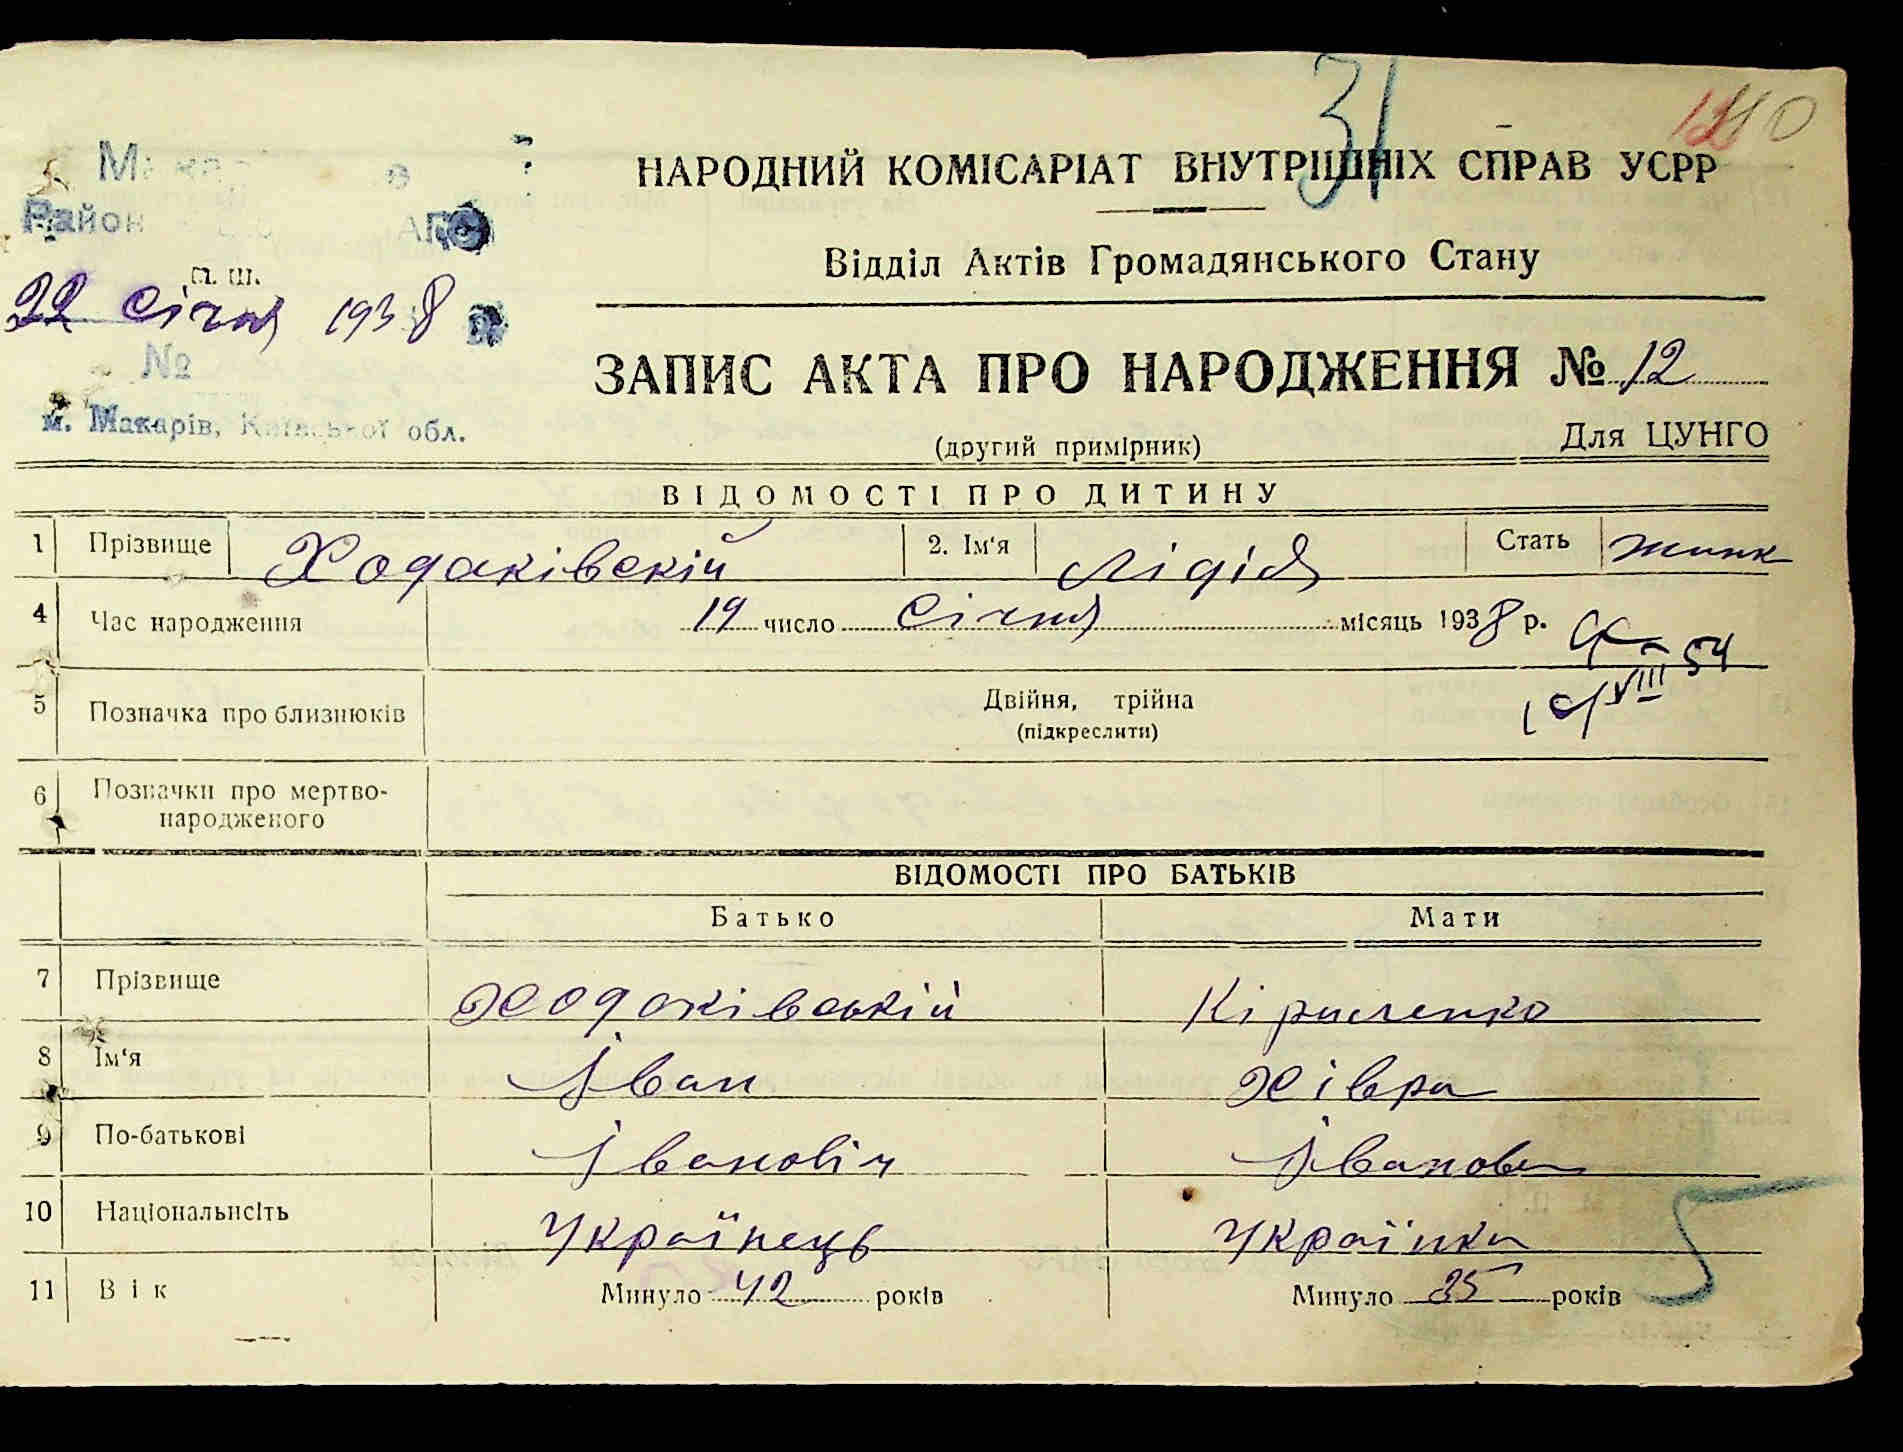 31
НАРОДНИЙ КОМІСАРІАТ ВНУТРІШНІХ СПРАВ УСРР
Відділ Актів Громадянського Стану
Район
22 Січня 1938
№
м. Макарів, Київської обл.
ЗАПИС АКТА ПРО НАРОДЖЕННЯ № 12
(другий примірник)
Для ЦУНГО
ВІДОМОСТІ ПРО ДИТИНУ
1 Прізвище Ходаківскій 2. Ім'я Лідія Стать жинк
4 Час народження 19 число Січня місяць 1938 р.
VIII 54
5 Позначка про близнюків Двійня, трійна
(підкреслити)
6 Позначки про мертво-
народженого
ВІДОМОСТІ ПРО БАТЬКІВ
Батько Мати
7 Прізвище Ходаківський Кириленко
8 Ім'я Іван Хівра
9 По-батькові Іванович Іванов
10 Національність Українець Українка
11 Вік Минуло 42 років Минуло 35 років
5